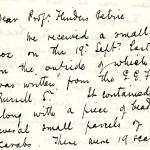 Dear Prof. Flinders Petrie
We received a small
box on the 19th Sept. last
on the outside of which
was written "from the E.E.F
Burrell S. It contained
along with a piece of bead
several small parcels of
scarabs. There were 19 sca